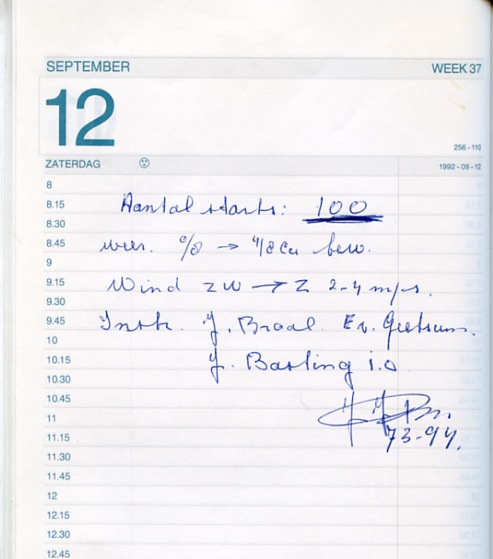 SEPTEMBER WEEK 37
12
256 - 110
ZATERDAG 1992 - 09 - 12
8
8.15 Aantal starts: 100
8.30
8.45 weer. 0/8 → 4/8 Cu bew.
9
9.15 Wind ZW → Z 2-4 m/s.
9.30
9.45 Instr. J. Braal Ev. Geetsum.
10
10.15 J. Barling i.o
10.30
10.45
11
73-94.
11.15
11.30
11.45
12
12.15
12.30
12.45